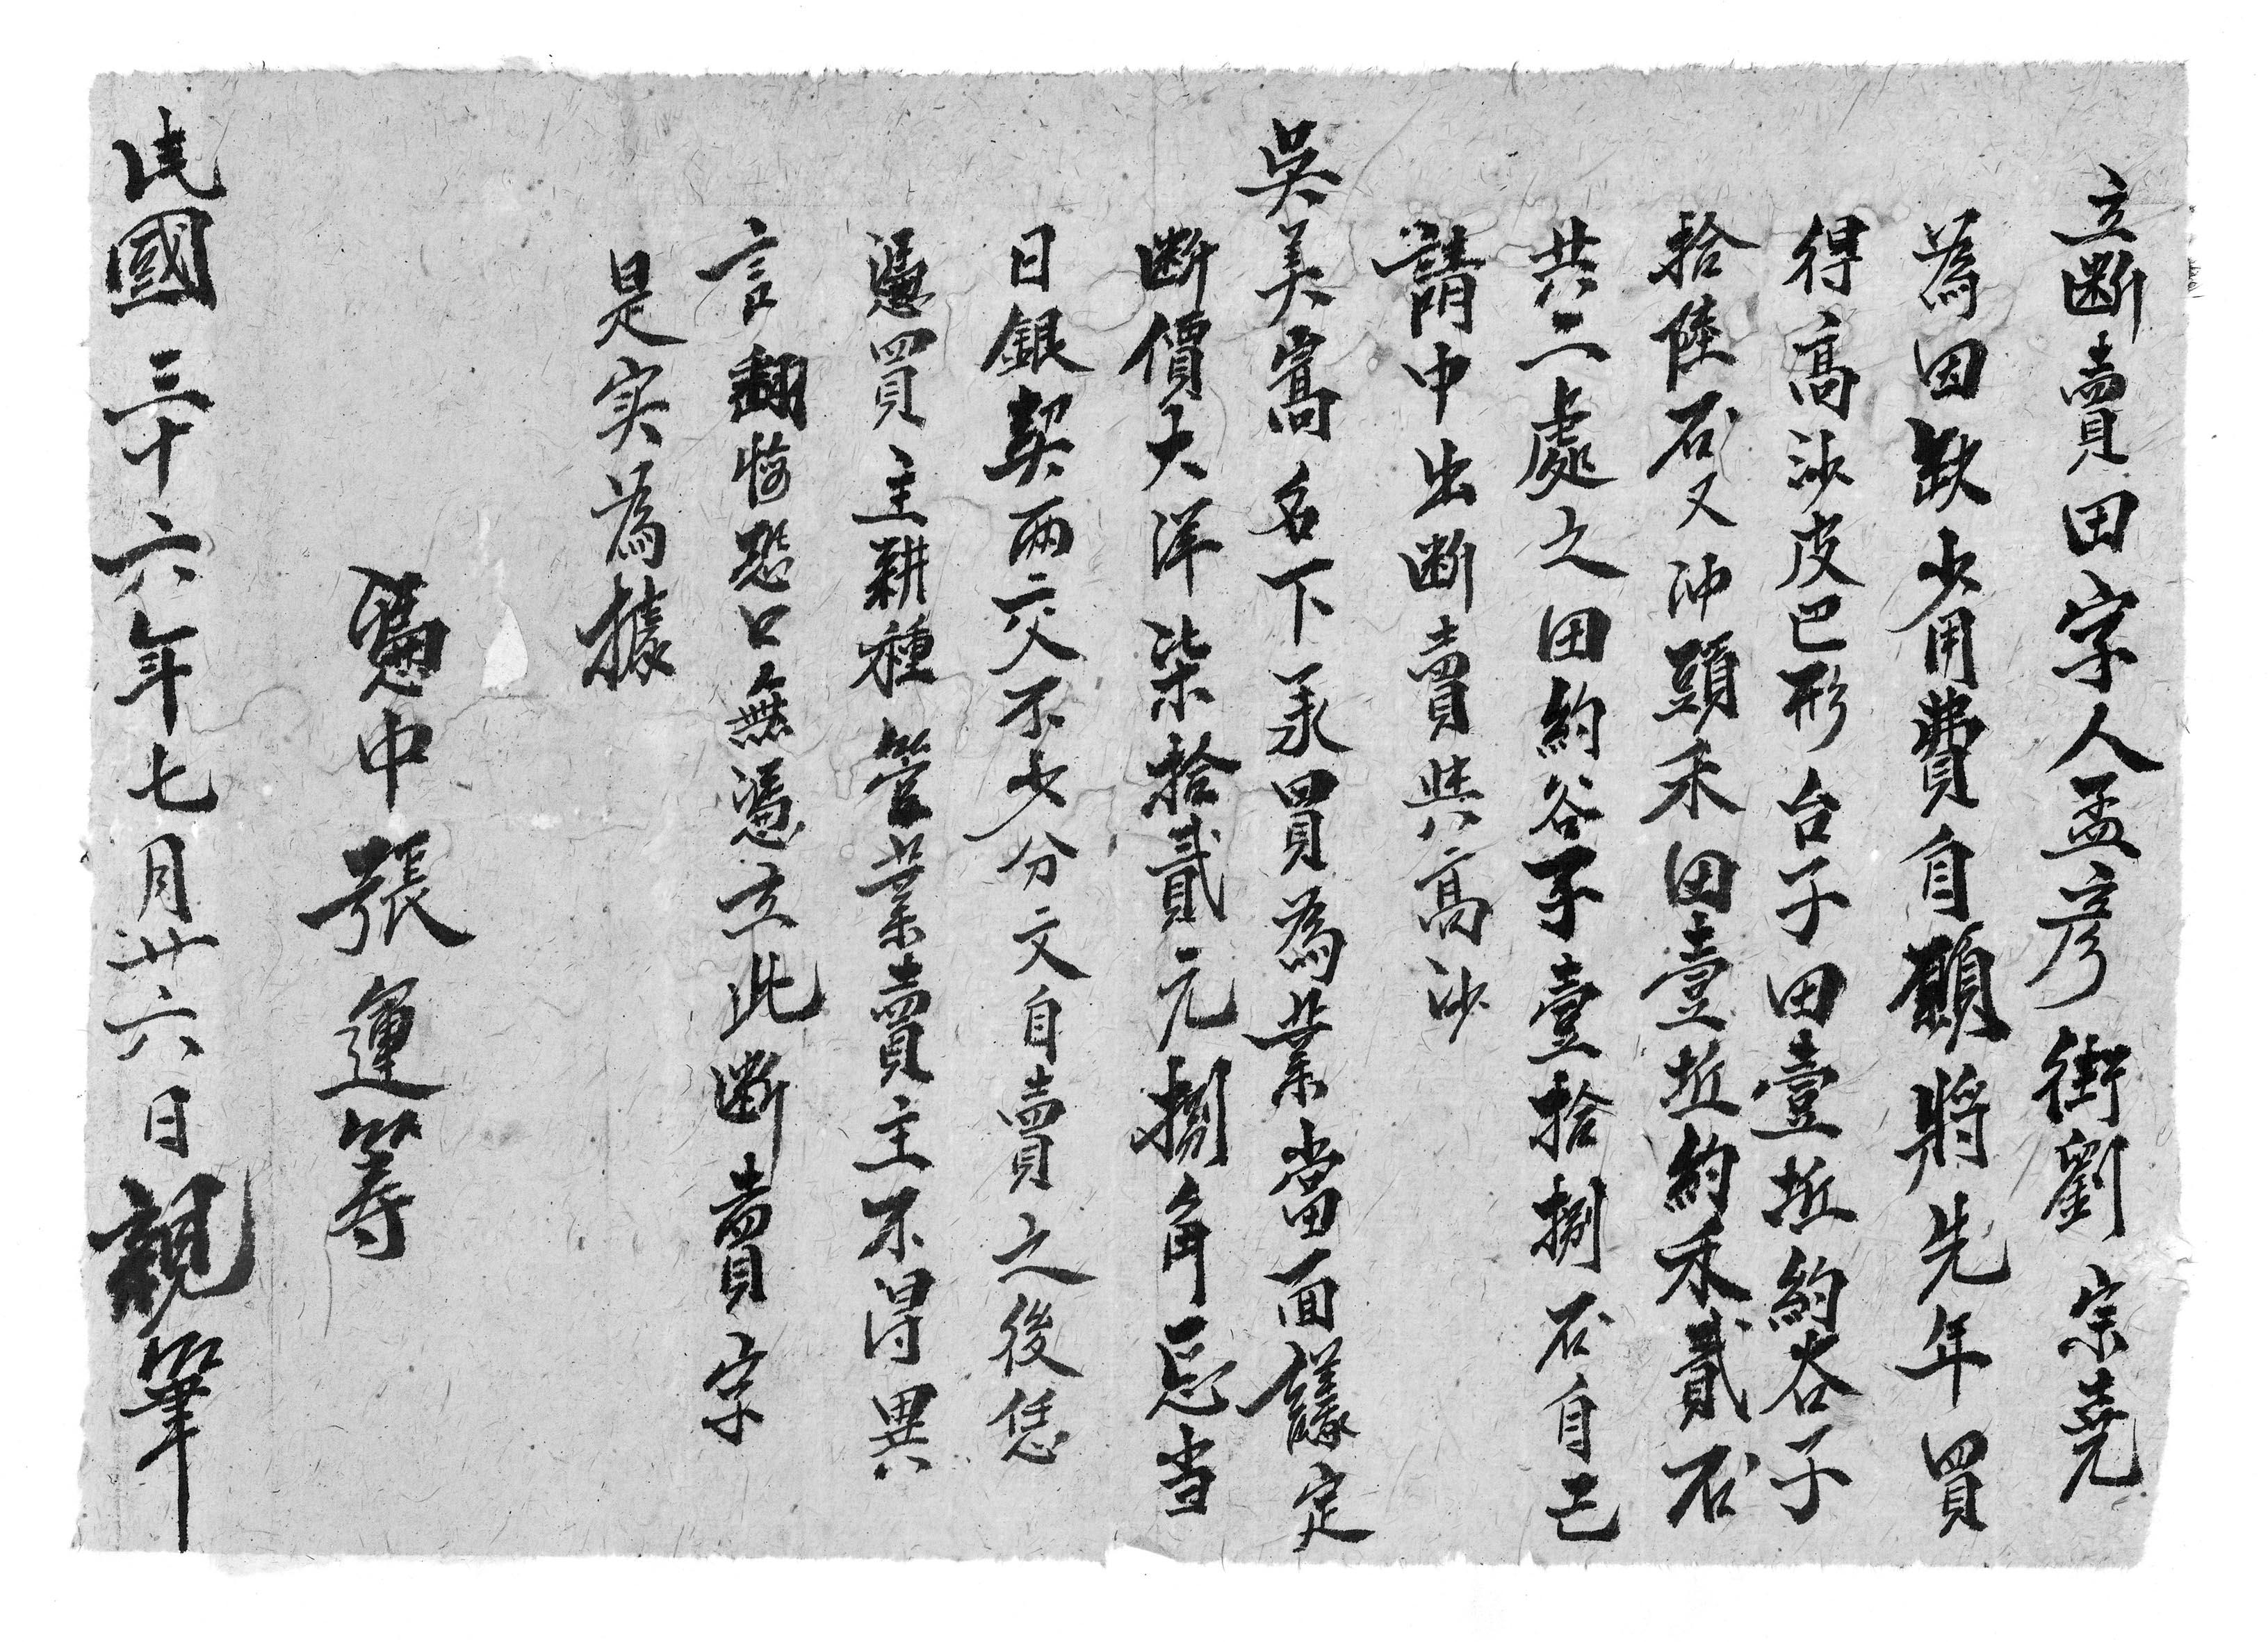 立斷賣田字人孟彦街劉宗堯
為因缺少用費自願將先年買
得高沙皮巴形台子田壹坵約谷子
拾陸石又冲頭禾田壹坵約禾貳石
共二處之田約谷子壹拾捌石自己
請中出断賣與高沙
吳美嵩名下承買為業當面議定
斷價大洋柒拾貳元捌角忘当
日銀契兩交不少分文自賣之後恁
憑買主耕種管業賣主不得異
言翻悔恐口無憑立此斷賣字
是实為據
憑中張運籌
民國三十六年七月廿六日親筆